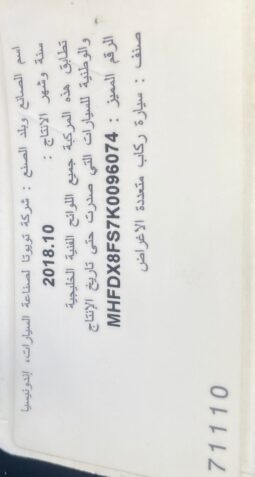 اسم الصانع وبلد الصنع : شركة تويوتا لصناعة السيارات، إندونيسيا
سنة وشهر الانتاج : 2018.10
تطابق هذه المركبة جميع اللوائح الفنية الخليجية
والوطنية للسيارات التي صدرت حتى تاريخ الإنتاج
الرقم المميز : MHFDX8FS7K0096074
صنف : سيارة ركاب متعددة الاغراض
71110